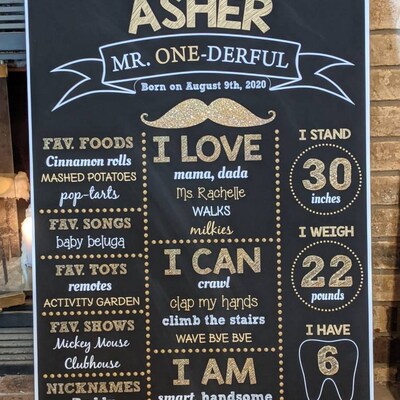 ASHER
MR. ONE-DERFUL
Born on August 9th, 2020
FAV. FOODS
Cinnamon rolls
MASHED POTATOES
pop-tarts
FAV. SONGS
baby beluga
FAV. TOYS
remotes
ACTIVITY GARDEN
FAV. SHOWS
Mickey Mouse
Clubhouse
NICKNAMES
I LOVE
mama, dada
Ms. Rachelle
WALKS
milkies
I CAN
crawl
clap my hands
climb the stairs
WAVE BYE BYE
I AM
smart, handsome
I STAND
30
inches
I WEIGH
22
pounds
I HAVE
6